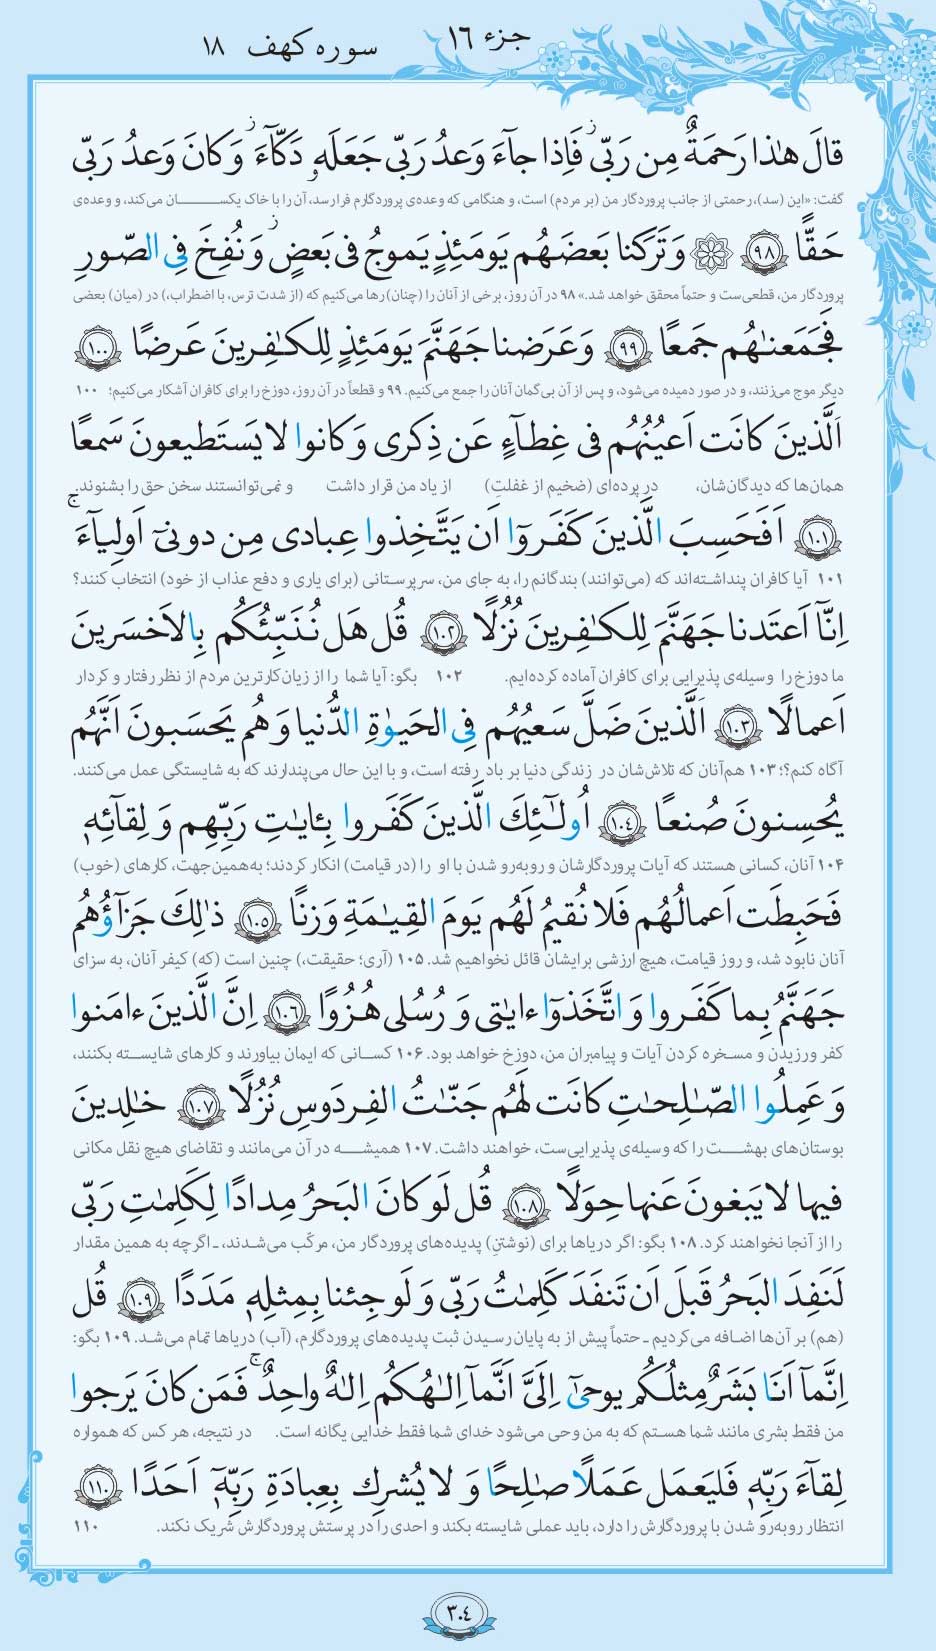 جزء ۱۶
سوره کهف ۱۸
قالَ هٰذا رَحمَةٌ مِن رَبّی فَاِذا جآءَ وَعدُ رَبّی جَعَلَهٗ دَکّآءَ وَکانَ وَعدُ رَبّی
گفت: «این (سد)، رحمتی از جانب پروردگار من (بر مردم) است، و هنگامی که وعده‌ی پروردگارم فرارسد، آن را با خاک یکســـان می‌کند، و وعده‌ی
حَقًّا ﴿۹۸﴾ ۞ وَتَرَکنا بَعضَهُم یَومَئِذٍ یَموجُ فی بَعضٍ وَنُفِخَ فِی الصّورِ
پروردگار من، قطعی‌ست و حتماً محقق خواهد شد.» ۹۸ در آن روز، برخی از آنان را (چنان) رها می‌کنیم که (از شدت ترس، با اضطراب،) در (میان) بعضی
فَجَمَعنٰهُم جَمعًا ﴿۹۹﴾ وَعَرَضنا جَهَنَّمَ یَومَئِذٍ لِلکٰفِرینَ عَرضًا ﴿۱۰۰﴾
دیگر موج می‌زنند، و در صور دمیده می‌شود، و پس از آن بی‌گمان آنان را جمع می‌کنیم. ۹۹ و قطعاً در آن روز، دوزخ را برای کافران آشکار می‌کنیم؛ ۱۰۰
اَلَّذینَ کانَت اَعیُنُهُم فی غِطآءٍ عَن ذِکری وَکانوا لا یَستَطیعونَ سَمعًا
همان‌ها که دیدگان‌شان، در پرده‌ای (ضخیم از غفلتِ) از یاد من قرار داشت و نمی‌توانستند سخن حق را بشنوند.
﴿۱۰۱﴾ اَفَحَسِبَ الَّذینَ کَفَروٓا اَن یَتَّخِذوا عِبادی مِن دونیٓ اَولِیآءَ
۱۰۱ آیا کافران پنداشته‌اند که (می‌توانند) بندگانم را، به جای من، سرپرستانی (برای یاری و دفع عذاب از خود) انتخاب کنند؟
اِنّآ اَعتَدنا جَهَنَّمَ لِلکٰفِرینَ نُزُلًا ﴿۱۰۲﴾ قُل هَل نُنَبِّئُکُم بِالاَخسَرینَ
ما دوزخ را وسیله‌ی پذیرایی برای کافران آماده کرده‌ایم. ۱۰۲ بگو: آیا شما را از زیان‌کارترین مردم از نظر رفتار و کردار
اَعمالًا ﴿۱۰۳﴾ اَلَّذینَ ضَلَّ سَعیُهُم فِی الحَیوٰةِ الدُّنیا وَهُم یَحسَبونَ اَنَّهُم
آگاه کنم؟؛ ۱۰۳ هم‌آنان که تلاش‌شان در زندگی دنیا بر باد رفته است، و با این حال می‌پندارند که به شایستگی عمل می‌کنند.
یُحسِنونَ صُنعًا ﴿۱۰۴﴾ اُولٰٓئِكَ الَّذینَ کَفَروا بِـٔایٰتِ رَبِّهِم وَ لِقآئِهٖ
۱۰۴ آنان، کسانی هستند که آیات پروردگارشان و روبه‌رو شدن با او را (در قیامت) انکار کردند؛ به‌همین‌جهت، کارهای (خوب)
فَحَبِطَت اَعمالُهُم فَلا نُقیمُ لَهُم یَومَ القِیٰمَةِ وَزنًا ﴿۱۰۵﴾ ذٰلِكَ جَزآؤُهُم
آنان نابود شد، و روز قیامت، هیچ ارزشی برایشان قائل نخواهیم شد. ۱۰۵ (آری؛ حقیقت،) چنین است (که) کیفر آنان، به سزای
جَهَنَّمُ بِما کَفَروا وَاتَّخَذوٓا ءایٰتی وَ رُسُلی هُزُوًا ﴿۱۰۶﴾ اِنَّ الَّذینَ ءامَنوا
کفر ورزیدن و مسخره کردن آیات و پیامبران من، دوزخ خواهد بود. ۱۰۶ کســانی که ایمان بیاورند و کارهای شایســته بکنند،
وَ عَمِلُوا الصّٰلِحٰتِ کانَت لَهُم جَنّٰتُ الفِردَوسِ نُزُلًا ﴿۱۰۷﴾ خٰلِدینَ
بوستان‌های بهشــت را که وسیله‌ی پذیرایی‌ست، خواهند داشت. ۱۰۷ همیشــه در آن می‌مانند و تقاضای هیچ نقل مکانی
فیها لا یَبغونَ عَنها حِوَلًا ﴿۱۰۸﴾ قُل لَو کانَ البَحرُ مِدادًا لِکَلِمٰتِ رَبّی
را از آنجا نخواهند کرد. ۱۰۸ بگو: اگر دریاها برای (نوشتنِ) پدیده‌های پروردگار من، مرکّب می‌شدند، ـ اگرچه به همین مقدار
لَنَفِدَ البَحرُ قَبلَ اَن تَنفَدَ کَلِمٰتُ رَبّی وَ لَو جِئنا بِمِثلِهٖ مَدَدًا ﴿۱۰۹﴾ قُل
(هم) بر آن‌ها اضافه می‌کردیم ـ حتماً پیش از به پایان رسیدن ثبت پدیده‌های پروردگارم، (آب) دریاها تمام می‌شد. ۱۰۹ بگو:
اِنَّمآ اَنَا بَشَرٌ مِثلُکُم یوحیٰٓ اِلَیَّ اَنَّمآ اِلٰهُکُم اِلٰهٌ واحِدٌ فَمَن کانَ یَرجوا
من فقط بشری مانند شما هستم که به من وحی می‌شود خدای شما فقط خدایی یگانه است. در نتیجه، هر کس که همواره
لِقآءَ رَبِّهٖ فَلیَعمَل عَمَلًا صٰلِحًا وَ لا یُشرِك بِعِبادَةِ رَبِّهٖٓ اَحَدًا ﴿۱۱۰﴾
انتظار روبه‌رو شدن با پروردگارش را دارد، باید عملی شایسته بکند و احدی را در پرستش پروردگارش شریک نکند. ۱۱۰
۳۰۴